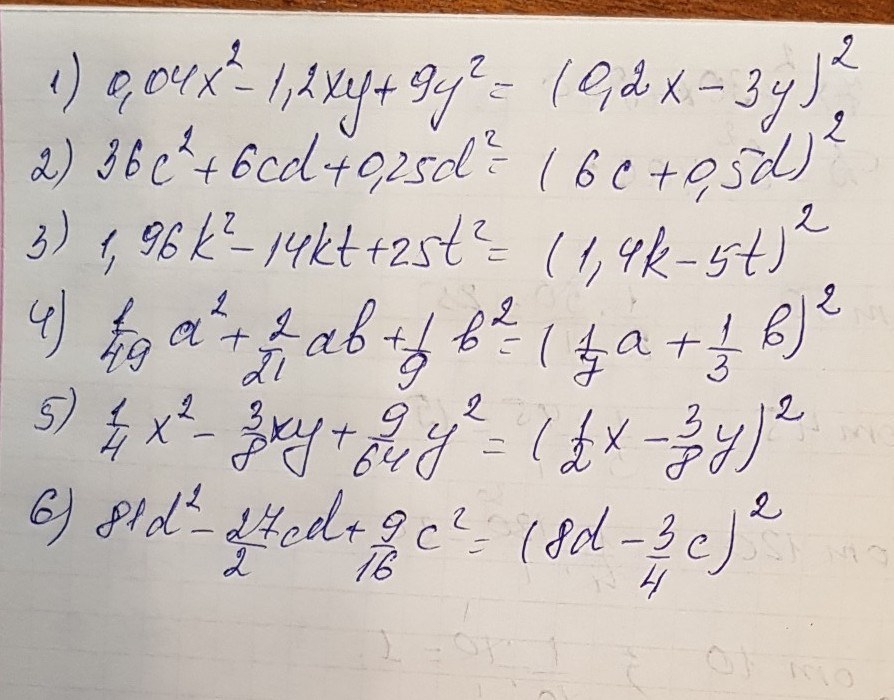 1) 0,04x² - 1,2xy + 9y² = (0,2x - 3y)²
2) 36c² + 6cd + 0,25d² = (6c + 0,5d)²
3) 1,96k² - 14kt + 25t² = (1,4k - 5t)²
4) 1/49 a² + 2/21 ab + 1/9 b² = (1/7 a + 1/3 b)²
5) 1/4 x² - 3/8 xy + 9/64 y² = (1/2 x - 3/8 y)²
6) 81d² - 27/2 cd + 9/16 c² = (8d - 3/4 c)²